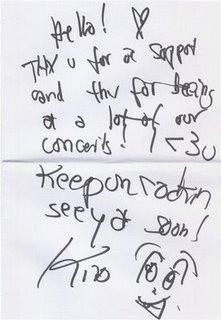 Hello!
Thx u for a support
and thx for being
at a lot of our
concerts! <3u
Keep on rockin
see ya soon!
Kiro